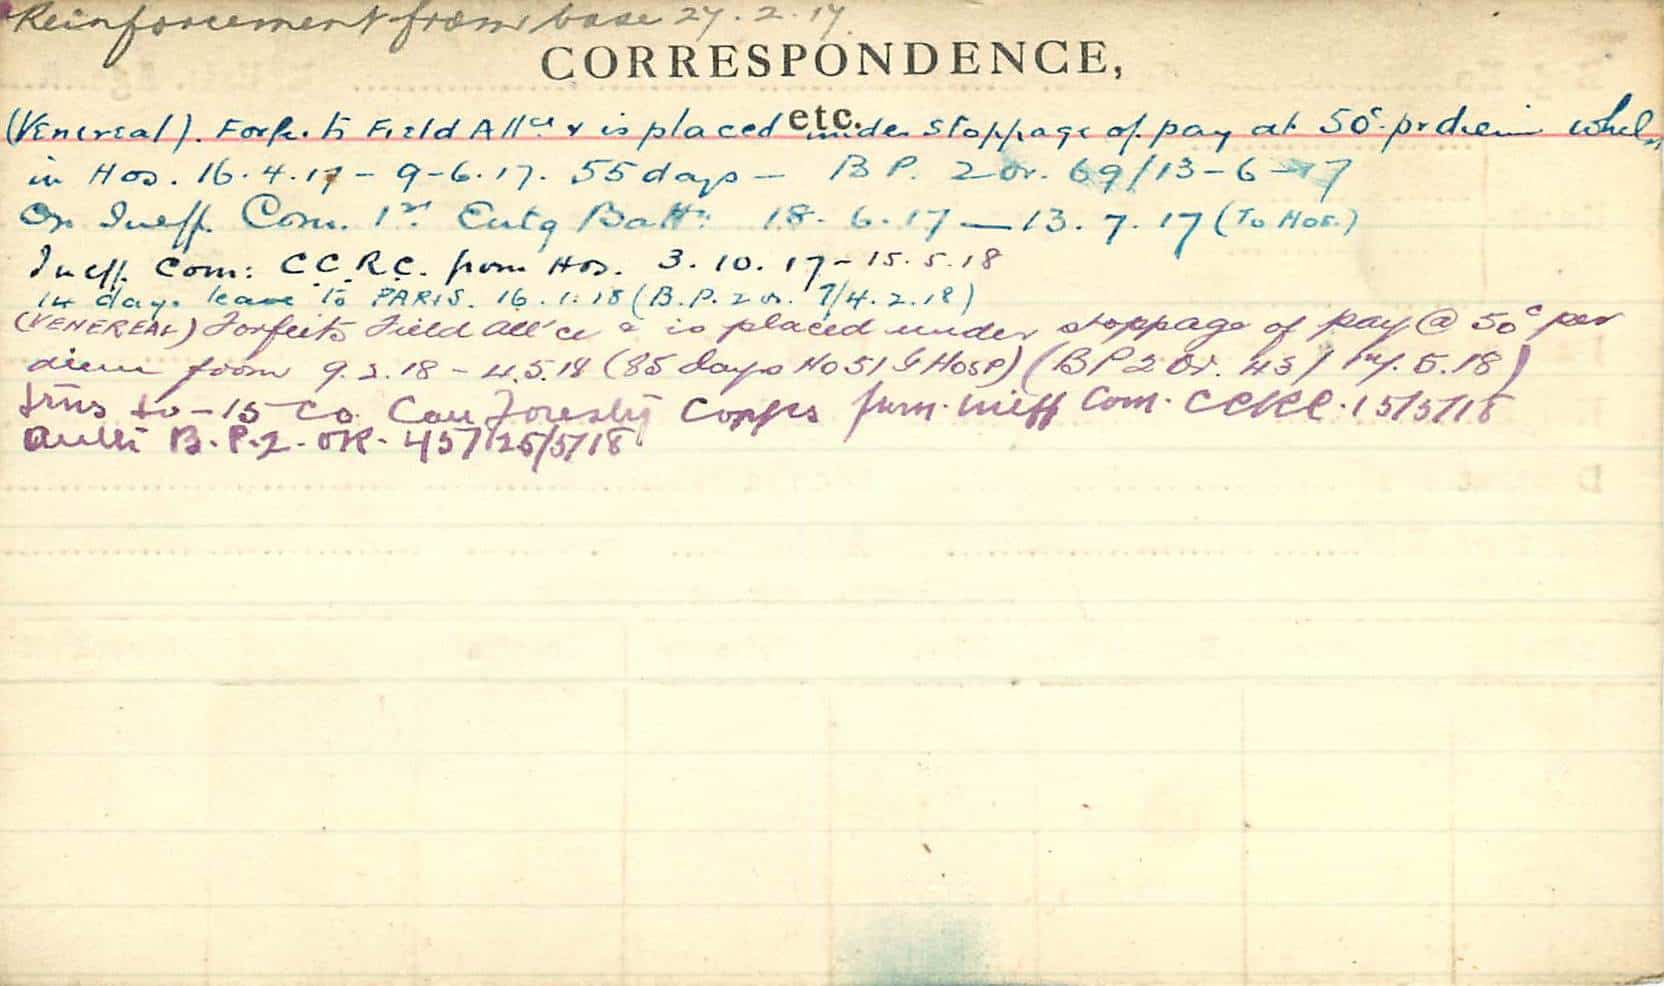 Reinforcement from base 27.2.17.
CORRESPONDENCE,
etc.
(Venereal). Forfeits Field Allce & is placed under stoppage of pay at 50c. pr diem whilst
in Hos. 16.4.17 - 9-6.17. 55 days - B P. 2 Or. 69/13-6-17
On Ineff. Com. 1st Entg Battn 18. 6.17 - 13. 7. 17 (To Hos.)
Ineff. Com: C C R C. from Hos. 3. 10. 17 - 15. 5. 18
14 days leave to PARIS. 16.1.18 (B.P. 2 Or. 7/4.2.18)
(VENEREAL) Forfeits Field All'ce & is placed under stoppage of pay @ 50c per
diem from 9.2.18 - 4.5.18 (85 days No 51 G HOSP) (B P 2 Or. 43/14.5.18)
trns to - 15 Co. Can Forestry Corps from Ineff Com. CCRC. 15/5/18
Auth B.P.2. OR. 457/25/5/18